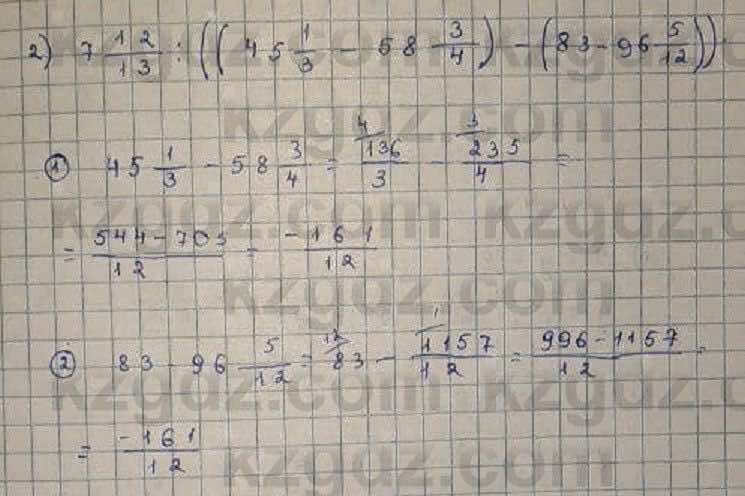 2) 7 12/13 : ((45 1/3 - 58 3/4) - (83 - 96 5/12))
① 45 1/3 - 58 3/4 = 4/ 136/3 - 3/ 235/4 =
= 544-705/12 = -161/12
② 83 - 96 5/12 = 12/ 83 - 1/ 1157/12 = 996-1157/12 =
= -161/12
kzgdz.com
kzgdz.com kzgdz.com
kzgdz.com
kzgdz.com kzgdz.com
kzgdz.com